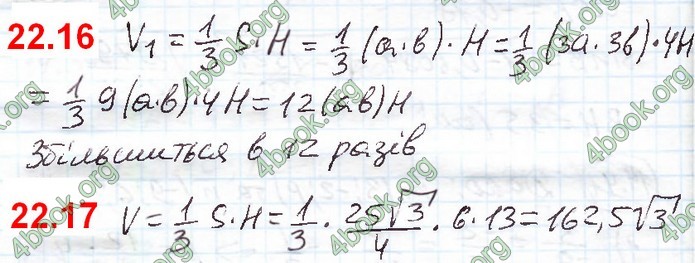 22.16 V₁ = 1/3 S·H = 1/3 (a·b)·H = 1/3 (3a·3b)·4H
= 1/3 9(a·b)·4H = 12(ab)H
Збільшиться в 12 разів
22.17 V = 1/3 S·H = 1/3 · 25√3/4 · 6·13 = 162,5√3
4book.org